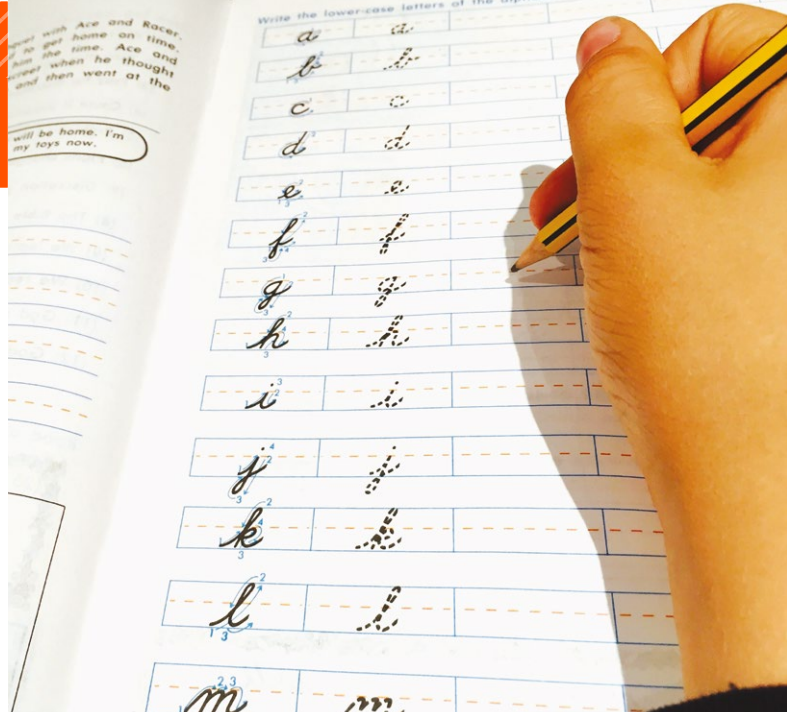 with Ace and Racer.
to get home on time.
him the time. Ace and
when he thought
and then went at the
will be home. I'm
my toys now.
Write the lower-case letters of the
a a
b b
c c
d d
e e
f f
g g
h h
i i
j j
k k
l l
m m